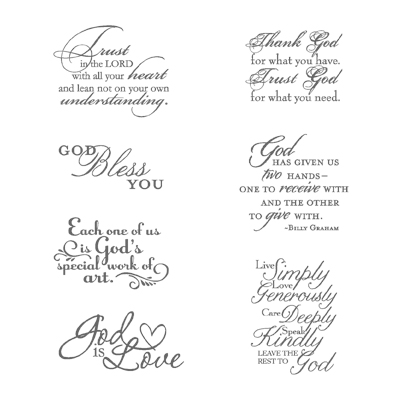 Trust
in the LORD
with all your heart
and lean not on your own
understanding.
GOD
Bless
YOU
Each one of us
is God's
special work of
art.
God
is Love
Thank God
for what you have.
Trust God
for what you need.
God
HAS GIVEN US
two HANDS–
ONE TO receive WITH
AND THE OTHER
TO give WITH.
~BILLY GRAHAM
Live
Simply
Love
Generously
Care Deeply
Speak
Kindly
LEAVE THE
REST TO God